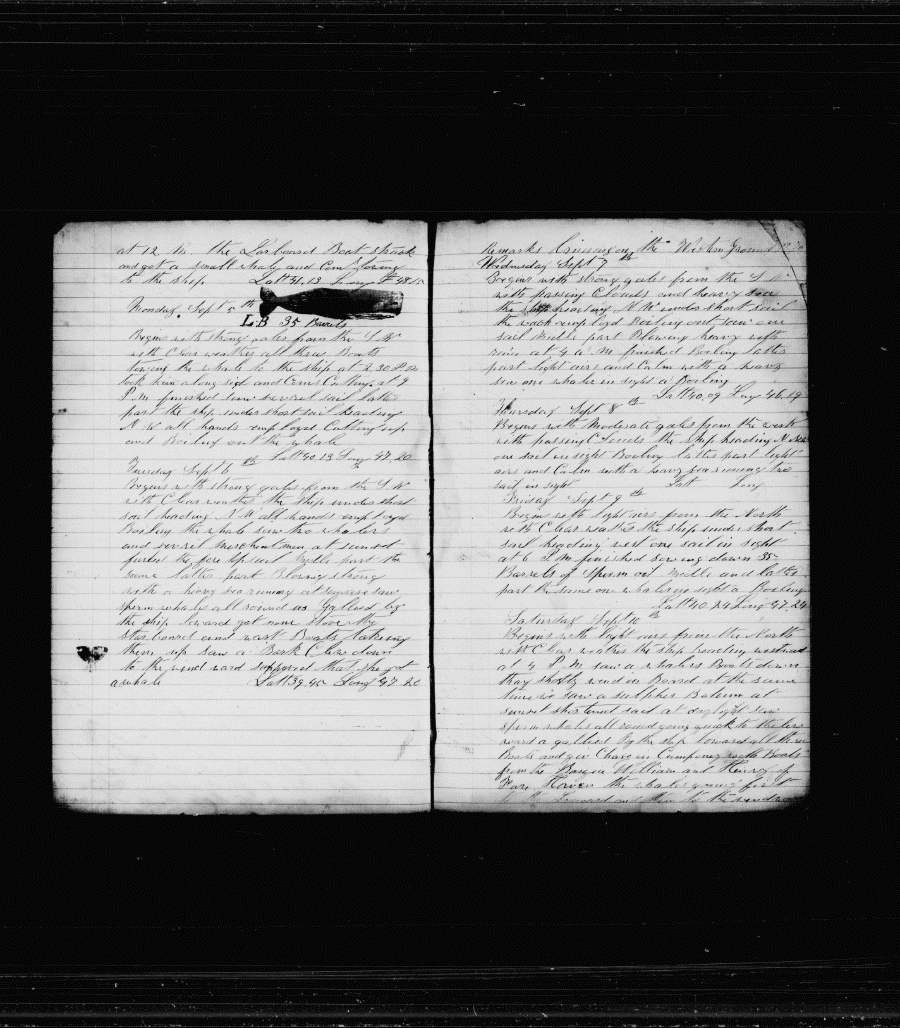 at 12 M the Larboard Boat struck
and got a small whale and Com towing
to the ship Latt 41,13 Long 48,15
Monday Sept 5th
L.B 35 Barrels
Begins with strong gales from the S W
with Clear weather all three Boats
towing the whale to the ship at 2.30 P M
took him along sid and Comns Cutting at 7
P.M finished seen severel sail latter
part the ship under short sail heading
N.W all hands employd Cutting up
and Boiling out the whale
Latt 40.13 Long 47.20
Tuesday Sept 6th
Begins with strong gales from the S W
with Clear weather the ship under short
sail heading N.W all hands employd
Boiling the whale saw two whalers
and severel merchantmen at sunset
furled the fore topsail Midle part the
same latter part Blowing strong
with a heavy sea running at sunrise saw
sperm whales all round us Gallied by
the ship lowerd got none stove My
starboard and wast Boats
them up saw a Bark Close down
to the wind ward supposed that she got
a whale Latt 39.40 Long 47.20
Remarks Cruising on the Western Ground
Wednesday Sept 7th
Begins with strong gales from the S W
with passing Clouds and heavy sea
the ship heading N W under short sail
the wach employd Boiling out saw one
sail Midle part Blowing heavy with
rain at 4 a M finished Boiling latter
part light airs and Calm with a heavy
sea one whaler in sight a Boiling
Latt 40,09 Long 46.19
Thursday Sept 8th
Begins with Moderate gales from the west
with passing Clouds the ship heading
one sail in sight Boiling latter part light
airs and Calm with a heavy sea running two
sail in sight Latt Long
Friday Sept 9th
Begins with light airs from the North
with Clear weather the ship under short
sail heading west one sail in sight
at 6 P M finished stowing down 35
Barrels of Sperm oil Midle and latter
part the same one whaler in sight a Boiling
Latt 40 29 Long 47.24
Saturday Sept 10th
Begins with light airs from the North
with Clear weather the ship heading westward
at 4 P.M saw a whalers Boats down
thay shortly went on Board at the same
time we saw a sulpher Bottom at
sunset shortend sail at daylight saw
sperm whales all round going quick to the lee
ward a gallied by the ship lowerd all three
Boats and giv Chase in Company with Boats
from the Barque William and Henry of
Fair Haven the whales going first
to the Leeward and then to the windward